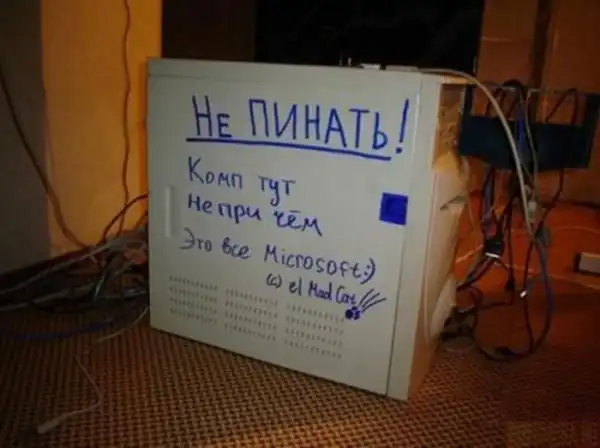 Не ПИНАТЬ!
Комп тут
не при чём
Это все Microsoft:)
(c) el Mad Cat